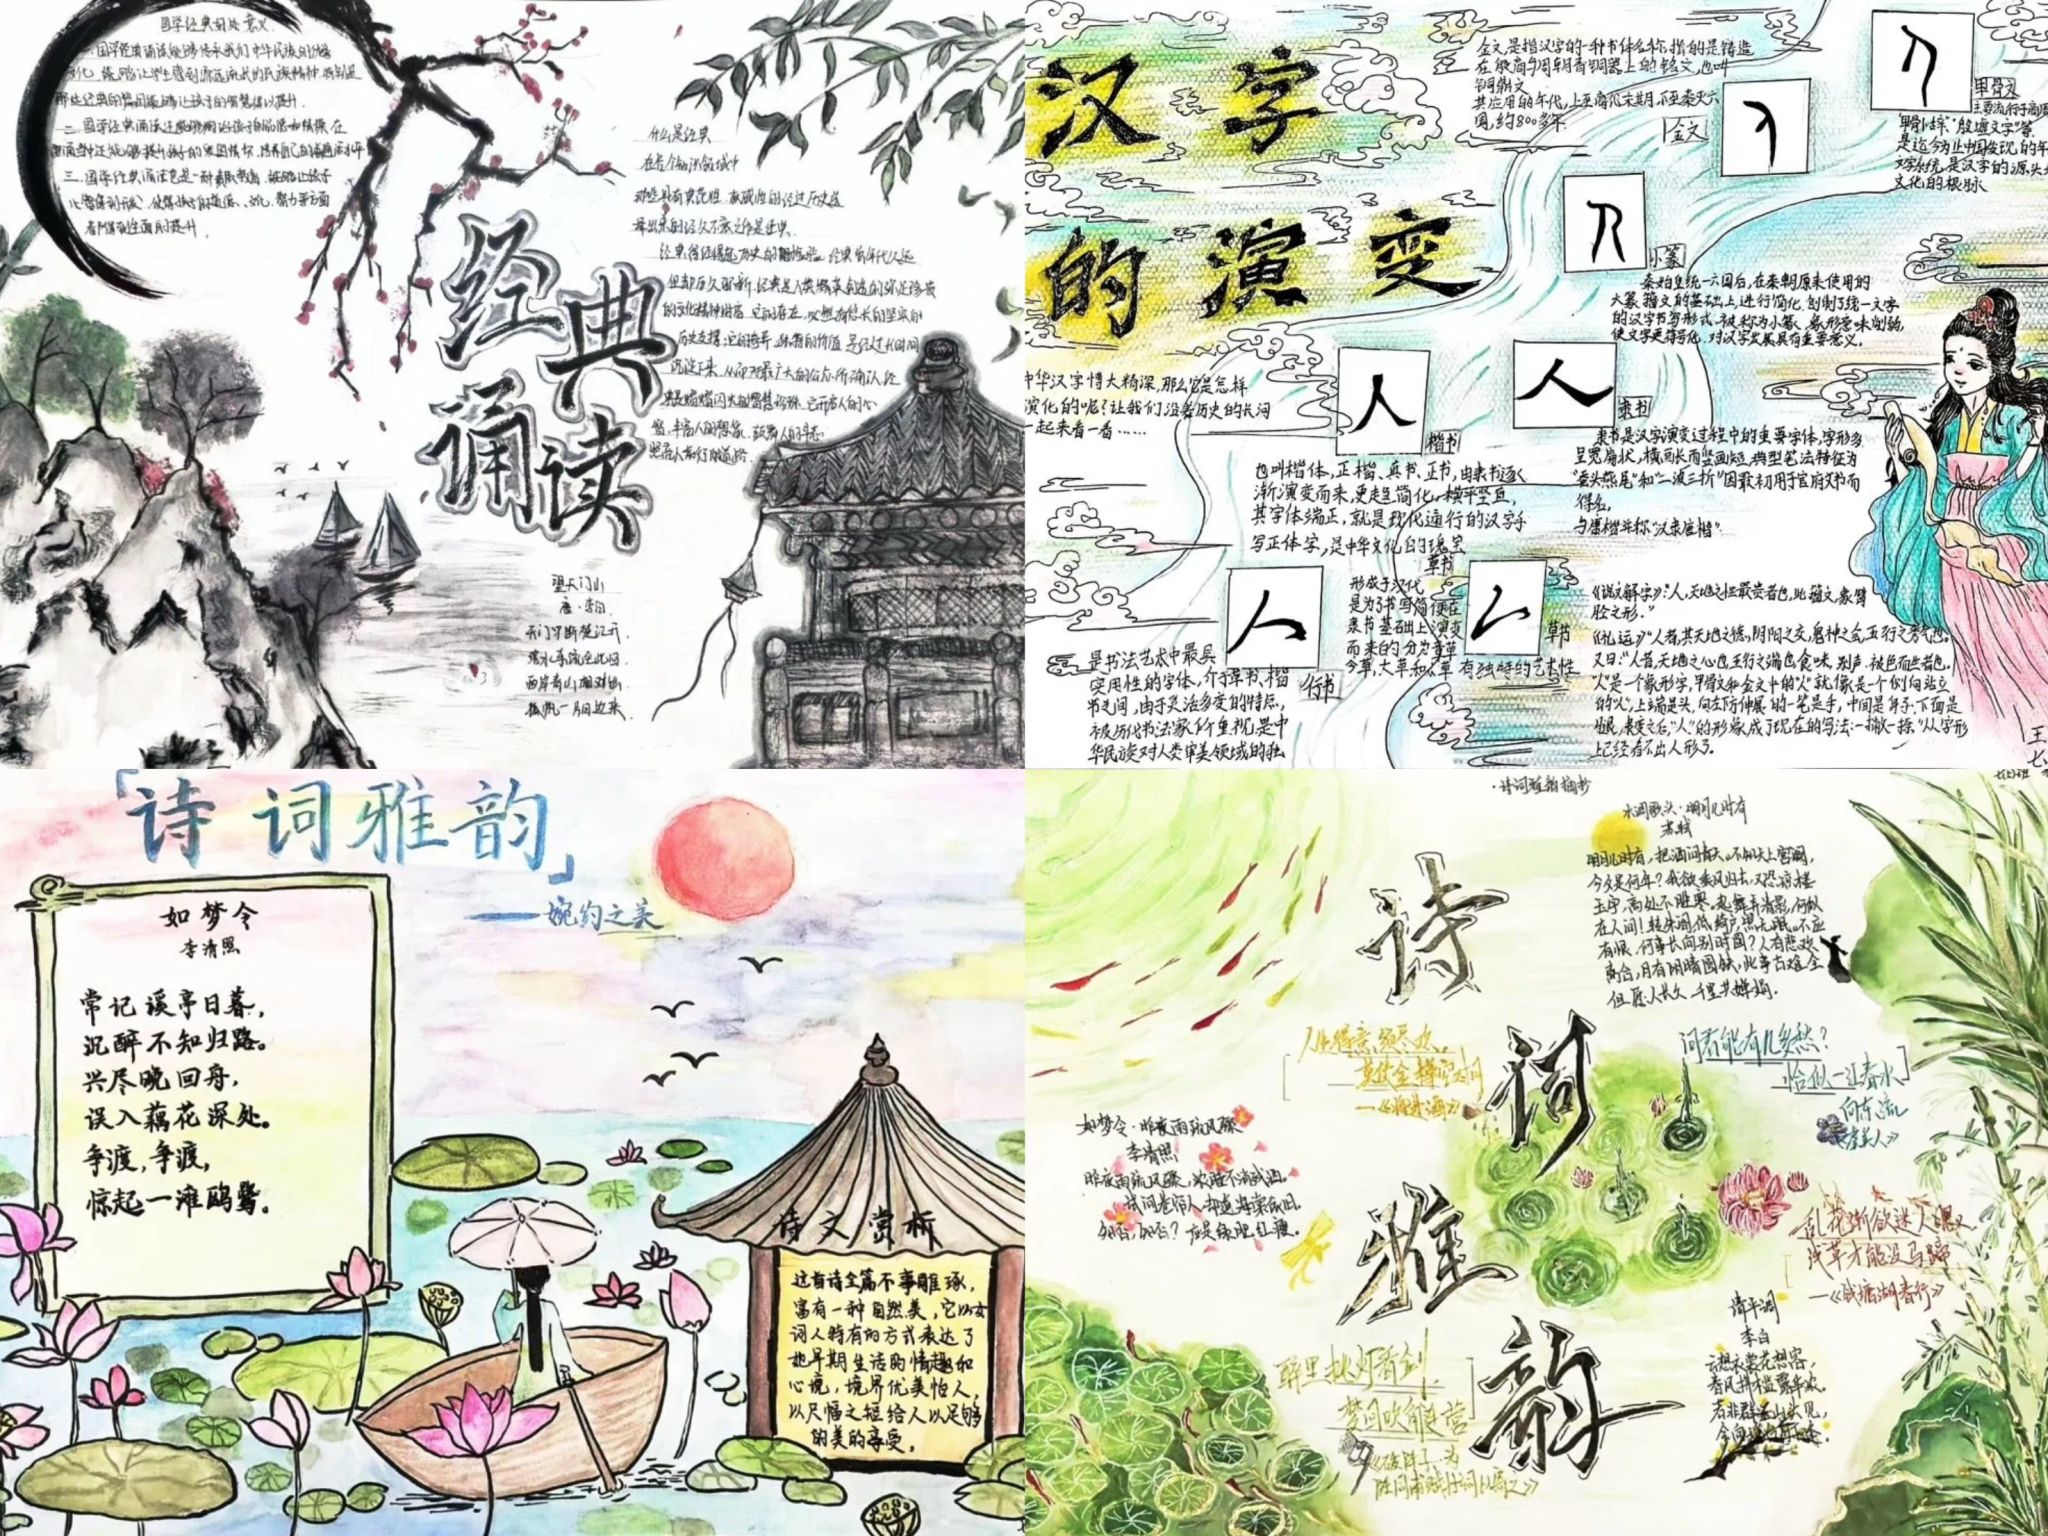 国学经典的好处 意义
什么是经典
在各个知识领域中
那些具有典范性、权威性的经过历史选
择出来的经久不衰之作是经典.
经典
诵读
望天门山
唐·李白
天门中断楚江开,
碧水东流至此回.
两岸青山相对出,
孤帆一片日边来.
汉字
的演变
金文是指汉字的一种书体名称,指的是铸造
在殷商与周朝青铜器上的铭文,也叫
钟鼎文
其应用的年代,上至商代末期,下至秦灭六
国,约800多年.
金文
甲骨文
是迄今为止中国发现的年
文字系统,是汉字的源头
文化的根脉
小篆
秦始皇统一六国后,在秦朝原来使用的
大篆籀文的基础上,进行简化,创制了统一文字
的汉字书写形式.被称为小篆,象形意味削弱,
使文字更符号化,对汉字发展具有重要意义。
中华汉字博大精深,那么它是怎样
演化的呢?让我们沿着历史的长河
一起来看一看……
楷书
也叫楷体,正楷、真书、正书,由隶书逐
渐演变而来,更趋简化,横平竖直,
其字体端正,就是现代通行的汉字手
写正体字,是中华文化的瑰宝
隶书
隶书是汉字演变过程中的重要字体,字形多
呈宽扁状,横画长而竖画短,典型笔法特征为
"蚕头燕尾"和"一波三折"因最初用于官府文书而
得名,
与唐楷并称"汉隶唐楷".
草书
形成于汉代
是为了书写简便在
隶书基础上演变
而来的分为章草
今草,大草和 草 有独特的艺术性
草书
行书
是书法艺术中最具
实用性的字体,介于草书、楷
书之间,由于灵活多变的特点,
被历代书法家所重视,是中
华民族对人类审美领域的独
《说文解字》:"人,天地之性最贵者也,此籀文,象臂
胫之形."
《礼运》"人者,其天地之德,阴阳之交,鬼神之会,五行之秀气也。
又曰:"人者,天地之心也,五行之端也,食味,别声,被色而生者也。
"人"是一个象形字,甲骨文和金文中的"人"就像是一个侧向站立
的"人",上端是头,向左下方伸展的一笔是手,中间是身子;下面是
腿,隶变之后,"人"的形象,成了现在的写法:一撇一捺."从字形
上已经看不出人形了。
「诗词雅韵」
——婉约之美
如梦令
李清照
常记溪亭日暮,
沉醉不知归路。
兴尽晚回舟,
误入藕花深处。
争渡,争渡,
惊起一滩鸥鹭。
诗文赏析
这首诗全篇不事雕琢,
富有一种自然美,它以女
词人特有的方式表达了
她早期生活的情趣和
心境,境界优美怡人,
以尺幅之短给人以足够
的美的享受。
·诗词雅韵摘抄
水调歌头·明月几时有
苏轼
明月几时有,把酒问青天。不知天上宫阙,
今夕是何年?我欲乘风归去,又恐琼楼
玉宇,高处不胜寒。起舞弄清影,何似
在人间!转朱阁,低绮户,照无眠。不应
有恨,何事长向别时圆?人有悲欢
离合,月有阴晴圆缺,此事古难全
但愿人长久,千里共婵娟.
诗
词
雅
韵
人生得意须尽欢,
莫使金樽空对月
—《将进酒》
问君能有几多愁?
恰似一江春水
向东流
如梦令·昨夜雨疏风骤
李清照
昨夜雨疏风骤,浓睡不消残酒。
试问卷帘人,却道海棠依旧.
知否,知否?应是绿肥红瘦。
乱花渐欲迷人眼
浅草才能没马蹄
—《钱塘湖春行》
醉里挑灯看剑,
梦回吹角连营
《破阵子·为
陈同甫赋壮词以寄之》
清平调
李白
云想衣裳花想容,
春风拂槛露华浓.
若非群玉山头见,